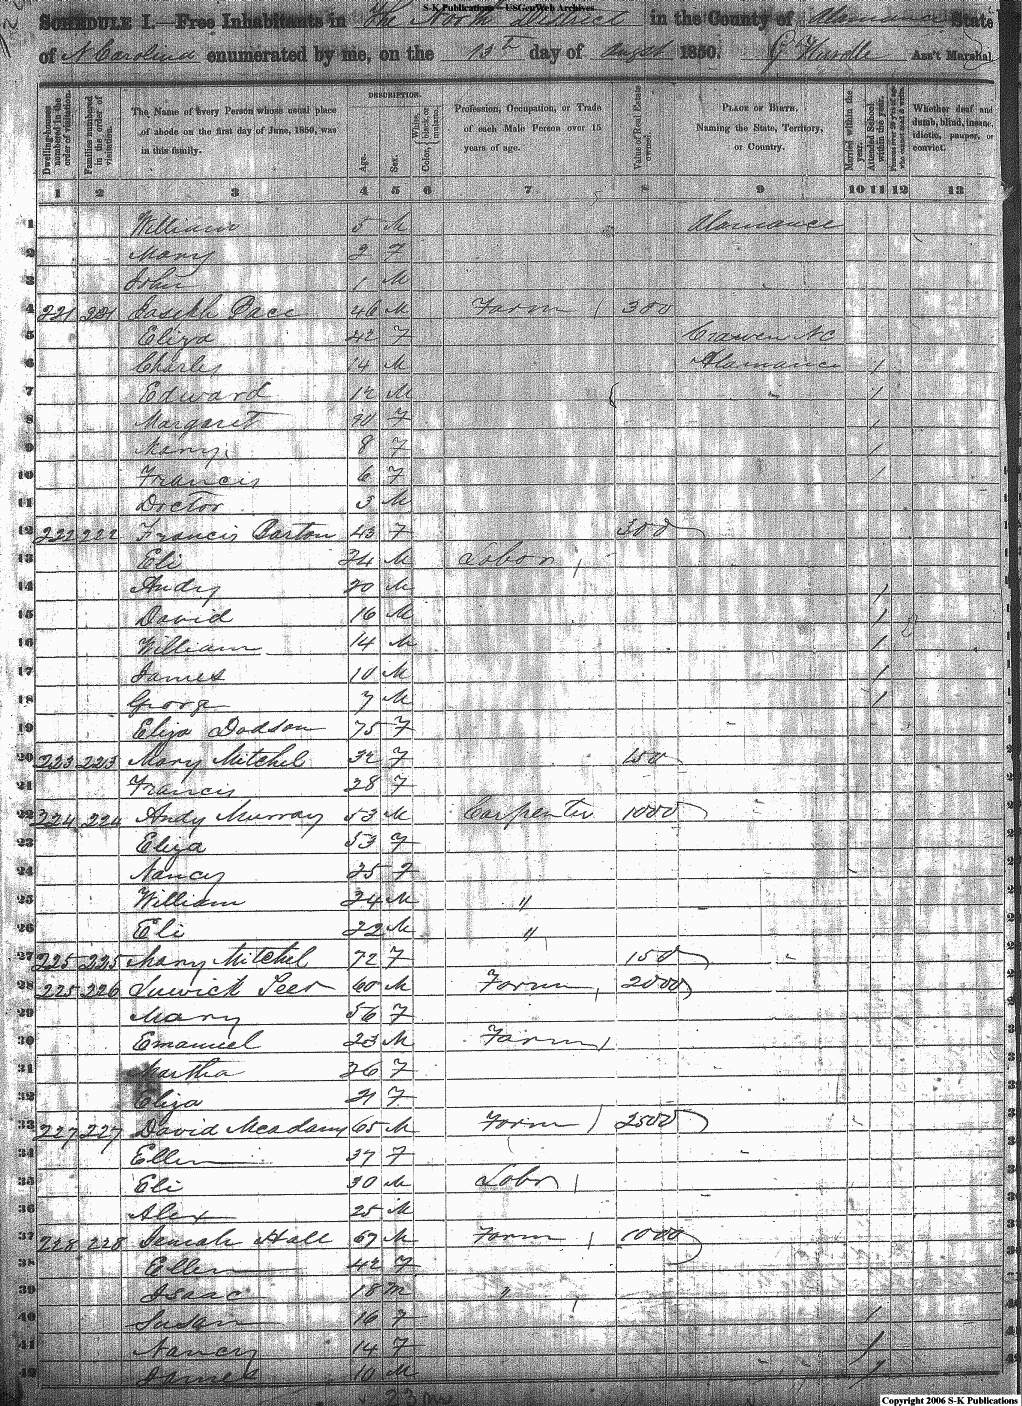 S-K Publications - USGenWeb Archives
SCHEDULE I.—Free Inhabitants in The North District in the County of Alamance State
of N Carolina enumerated by me, on the 13th day of August 1850. Ass't Marshal.
Dwelling-houses numbered in the order of visitation.
Families numbered in the order of visitation.
The Name of every Person whose usual place of abode on the first day of June, 1850, was in this family.
DESCRIPTION.
Age.
Sex.
Color, White, black, or mulatto.
Profession, Occupation, or Trade of each Male Person over 15 years of age.
Value of Real Estate owned.
PLACE OF BIRTH. Naming the State, Territory, or Country.
Married within the year.
Attended School within the year.
Persons over 20 y'rs of age who cannot read & write.
Whether deaf and dumb, blind, insane, idiotic, pauper, or convict.
1 2 3 4 5 6 7 8 9 10 11 12 13
1 William 5 M Alamance
2 Mary 2 F
3 John 1 M
4 221 221 Joseph Pace 46 M Farm 300
5 Eliza 42 F Craven NC
6 Charles 14 M Alamance 1
7 Edward 12 M 1
8 Margaret F 1
9 Mary 8 F 1
10 Francis 6 F 1
11 Doctor 3 M
12 222 222 Francis 43 F 300
13 Eli 24 M Labor
14 Andy 20 M 1
15 David 16 M 1
16 William 14 M 1
17 James 10 M 1
18 George 7 M 1
19 Eliza Dodson 75 F
20 223 223 Mary Mitchel 32 F 150
21 Francis 28 F
22 224 224 Andy Murray 53 M Carpenter 1000
23 Eliza 53 F
24 Nancy 25 F
25 William 24 M "
26 Eli 22 M "
27 225 225 Mary Mitchel 72 F 150
28 225 226 60 M Farm 2000
29 Mary 56 F
30 Emanuel 23 M Farm
31 Martha 26 F
32 Eliza 21 F
33 227 227 David Mcadams 65 M Farm 2500
34 Ellen 27 F
35 Eli 30 M Labor
36 Alex 25 M
37 228 228 Hall 67 M Farm 1000
38 Ellen 42 F
39 Isaac 18 M "
40 Susan 16 F 1
41 Nancy 14 F 1
42 James 10 M 1
23
Copyright 2006 S-K Publications